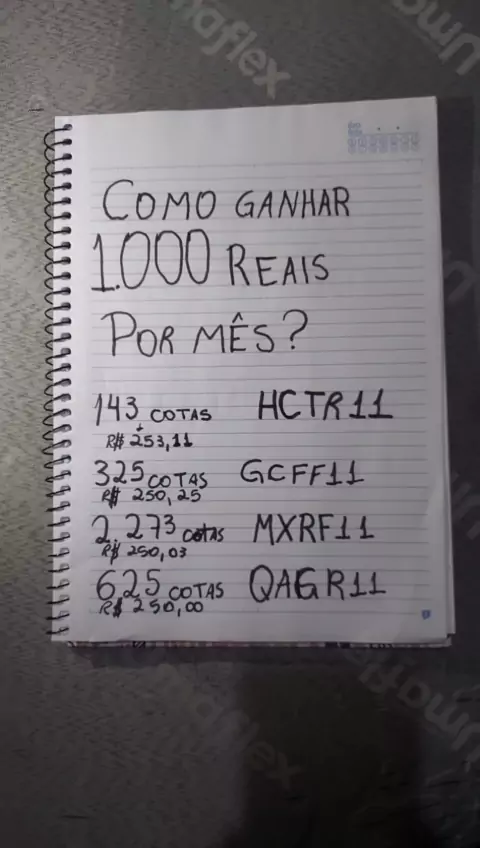 COMO GANHAR
1.000 REAIS
POR MÊS?
143 COTAS HCTR11
R$ 253,11
325 COTAS GCFF11
R$ 250,25
2.273 COTAS MXRF11
R$ 250,03
625 COTAS QAGR11
R$ 250,00